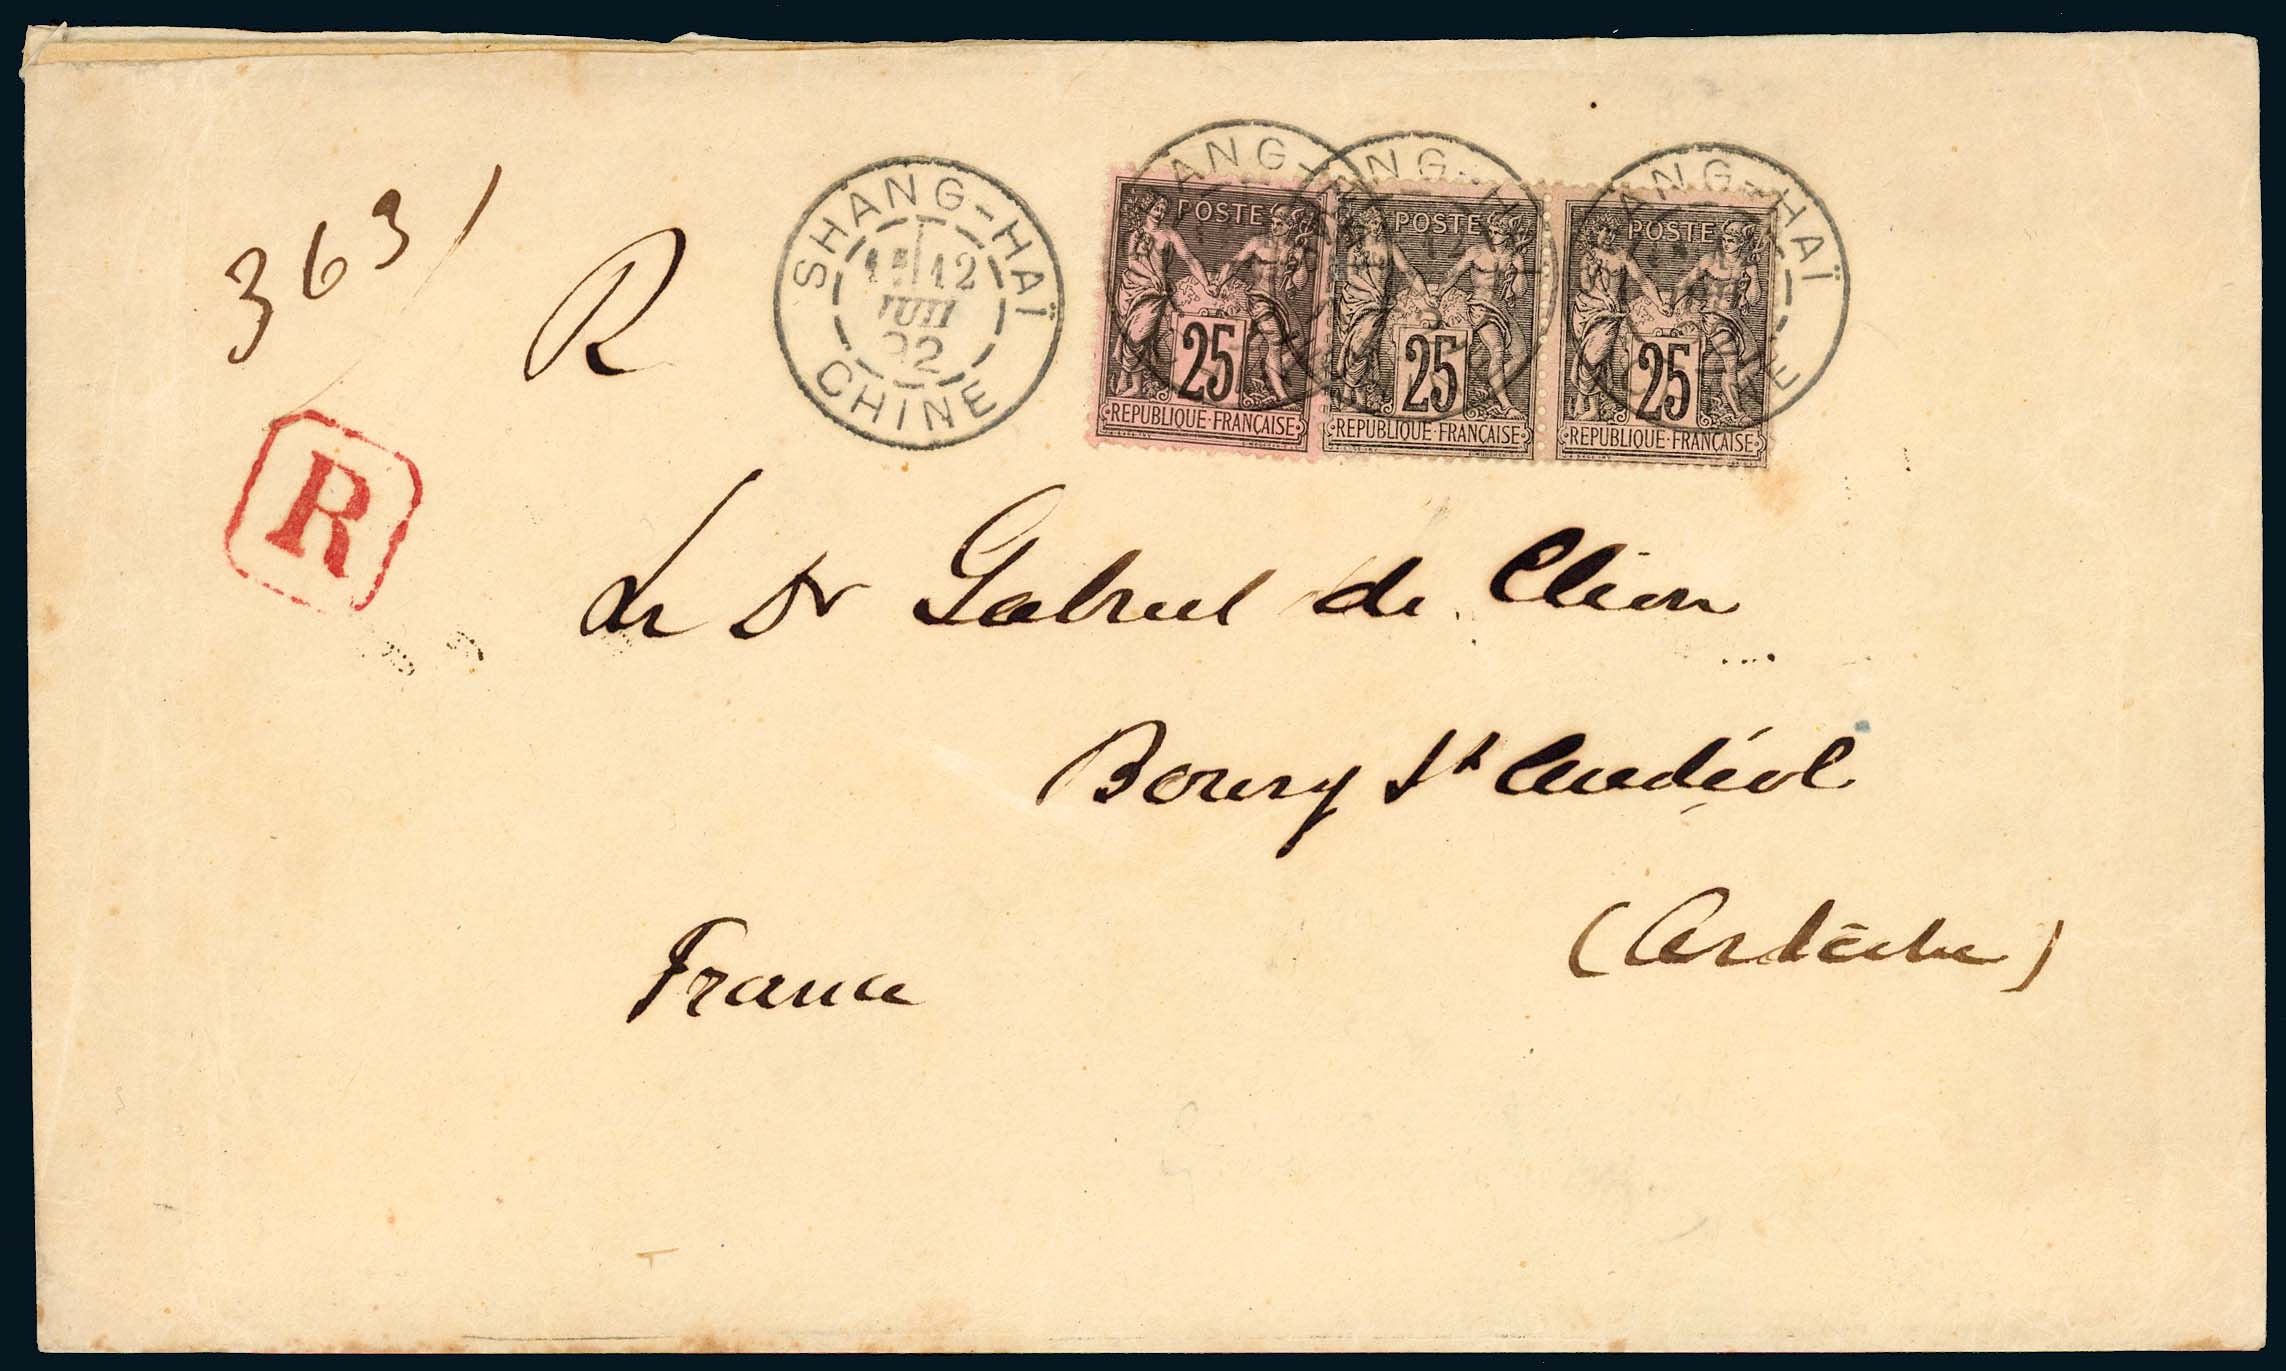 363
R
SHANG-HAÏ
12
JUIL
92
CHINE
ANG-H
ANG-H
ANG-HAÏ
NE
POSTE
25
REPUBLIQUE·FRANÇAISE
POSTE
25
REPUBLIQUE·FRANÇAISE
POSTE
25
REPUBLIQUE·FRANÇAISE
R
Le Dr Gabriel de Clion
Bourg St Andéol
(Ardèche)
France